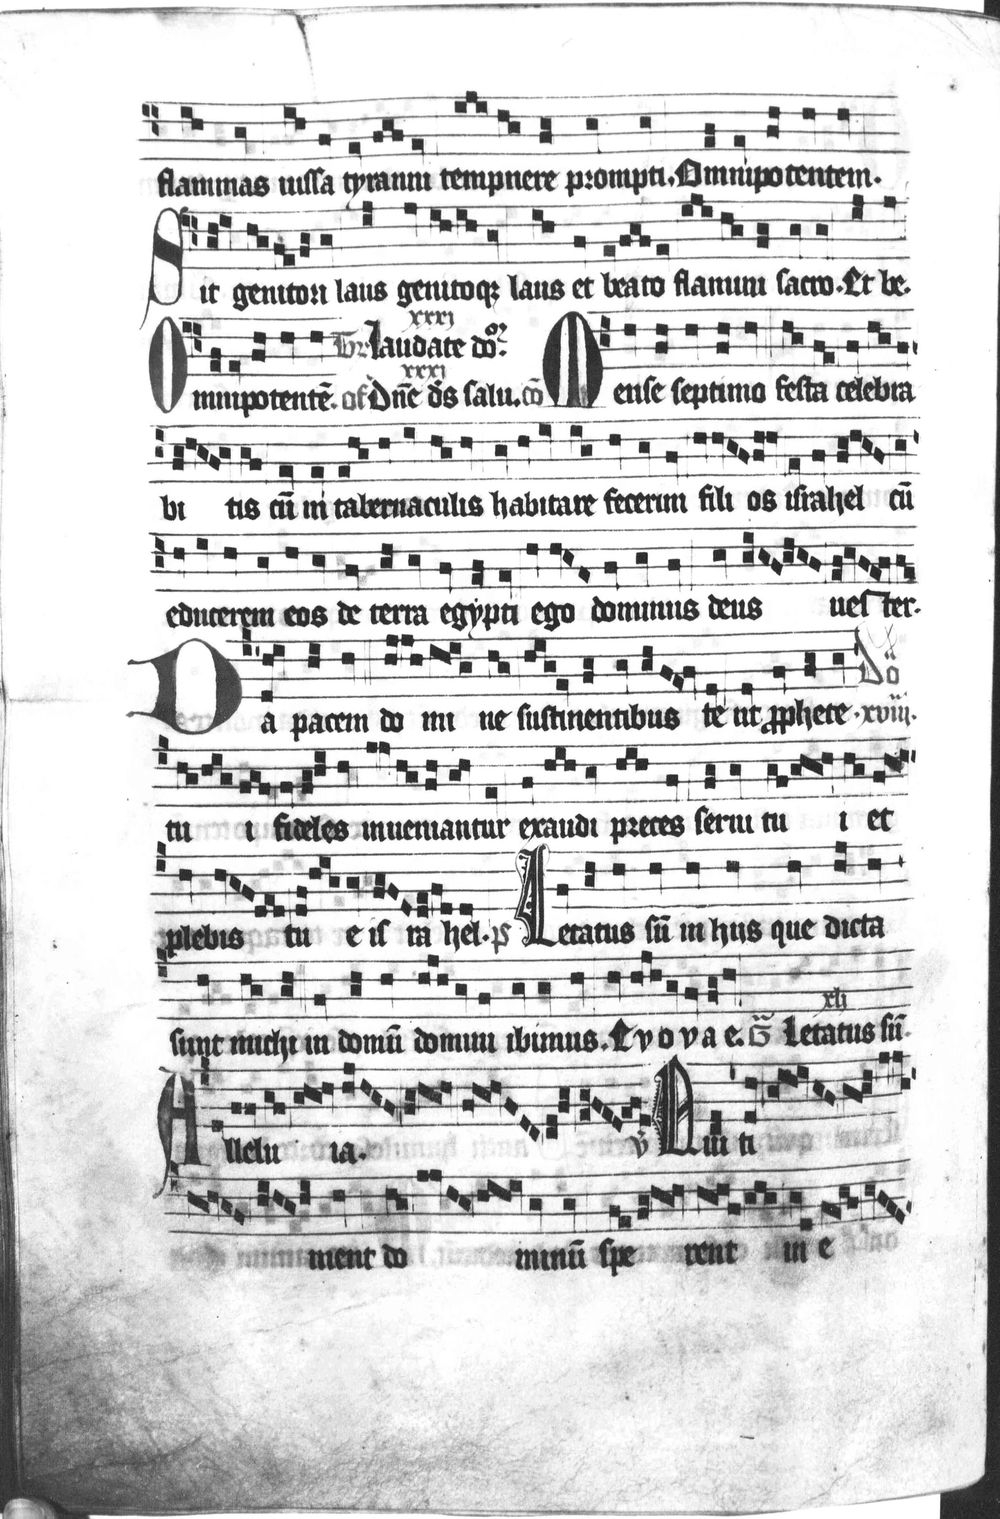 flammas iussa tyranni tempnere prompti. Omnipotentem.
Sit genitori laus genitoqz laus et beato flamini sacro. Et be.
xxxi
Omnipotentē. Tr Laudate dō. Mense septimo festa celebra
xxxi
of Dn̄e d̄s salu. cō
bi tis cū in tabernaculis habitare fecerim fili os israhel cū
educerem eos de terra egypti ego dominus deus ues ter.
Da pacem do mi ne sustinentibus te ut pphete Dō xviij.
tu i fideles inueniantur exaudi preces serui tu i et
plebis tu e is ra hel. ps Letatus sū in hiis que dicta
xli
sunt michi in domū domini ibimus. Evovae. G̃ Letatus sū.
Allelu ia. v̄ Qui ti
ment do minū spe rent in e